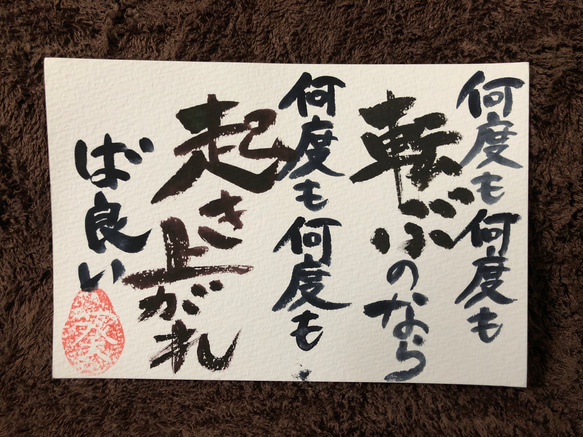 何度も何度も
転ぶのなら
何度も何度も
起き上がれ
ば良い